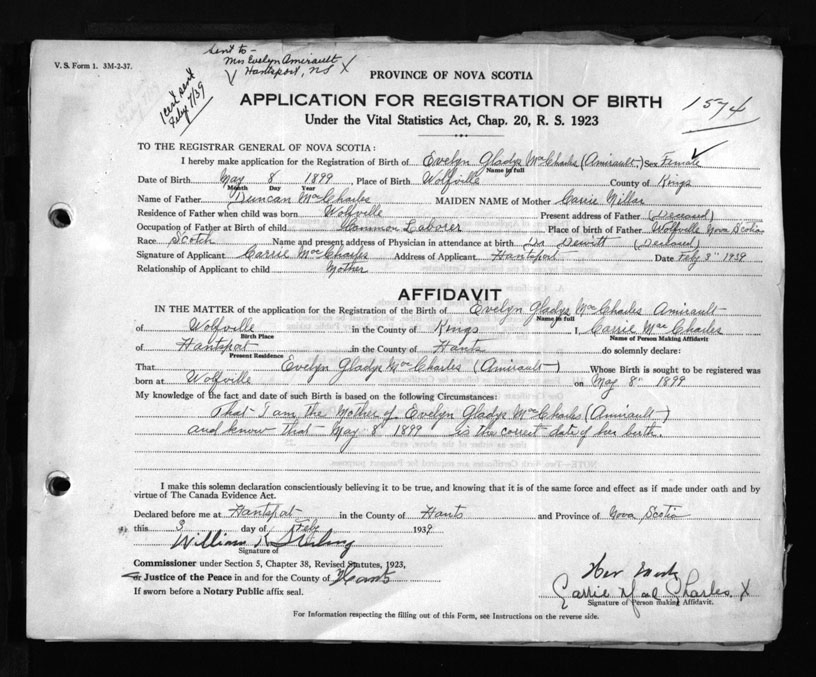 V. S. Form 1. 3M-2-37.
Sent to -
Mrs Evelyn Amirault
Hantsport, NS X
1 cert sent
Feby 7/39
PROVINCE OF NOVA SCOTIA
APPLICATION FOR REGISTRATION OF BIRTH
1574
Under the Vital Statistics Act, Chap. 20, R. S. 1923
TO THE REGISTRAR GENERAL OF NOVA SCOTIA:
I hereby make application for the Registration of Birth of Evelyn Gladys MacCharles (Amirault) Sex Female
Name in full
Date of Birth May 8 1899, Place of Birth Wolfville County of Kings
Month Day Year
Name of Father Duncan MacCharles MAIDEN NAME of Mother Carrie Millar
Residence of Father when child was born Wolfville Present address of Father (Deceased)
Occupation of Father at Birth of child Common Laborer Place of birth of Father Wolfville Nova Scotia
Race Scotch Name and present address of Physician in attendance at birth Dr Dewitt (Deceased)
Signature of Applicant Carrie MacCharles Address of Applicant Hantsport Date Feby 3" 1939
Relationship of Applicant to child Mother
AFFIDAVIT
IN THE MATTER of the application for the Registration of the Birth of Evelyn Gladys MacCharles Amirault
Name in full
of Wolfville in the County of Kings I, Carrie MacCharles
Birth Place Name of Person Making Affidavit
of Hantsport in the County of Hants do solemnly declare:
Present Residence
That Evelyn Gladys MacCharles (Amirault) Whose Birth is sought to be registered was
born at Wolfville on May 8" 1899
My knowledge of the fact and date of such Birth is based on the following Circumstances:
That I am the Mother of Evelyn Gladys MacCharles (Amirault)
and know that May 8 1899 is the correct date of her birth.
I make this solemn declaration conscientiously believing it to be true, and knowing that it is of the same force and effect as if made under oath and by
virtue of The Canada Evidence Act.
Declared before me at Hantsport in the County of Hants and Province of Nova Scotia
this 3 day of Feby 1939
William
Signature of
Commissioner under Section 5, Chapter 38, Revised Statutes, 1923,
or Justice of the Peace in and for the County of Hants
If sworn before a Notary Public affix seal.
Her Mark
Carrie MacCharles X
Signature of Person making Affidavit.
For Information respecting the filling out of this Form, see Instructions on the reverse side.